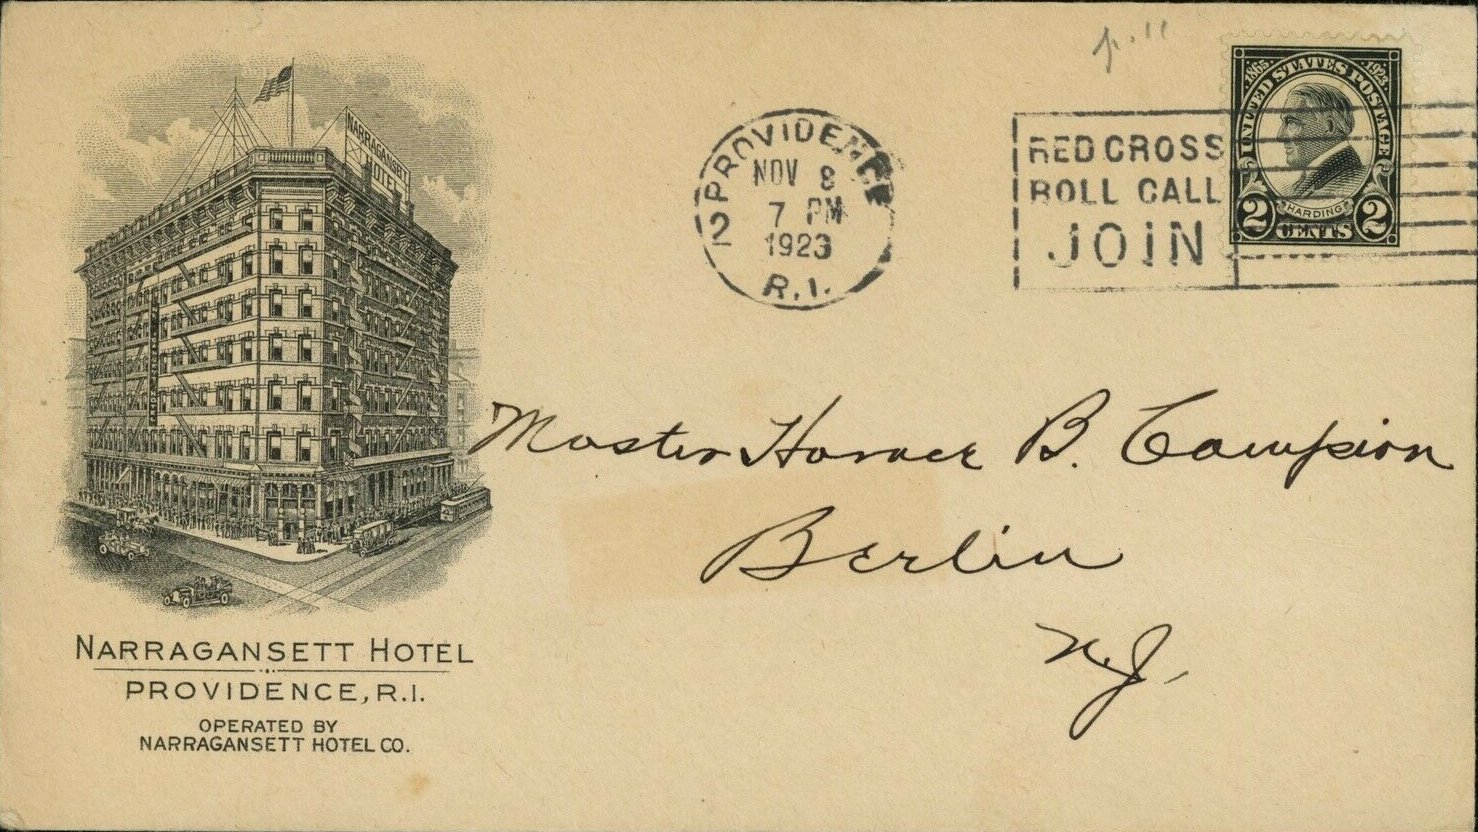 p. 11
NARRAGANSETT
HOTEL
2 PROVIDENCE
NOV 8
7 PM
1923
R.I.
RED CROSS
ROLL CALL
JOIN
1865 UNITED STATES POSTAGE 1923
HARDING
2 CENTS 2
Master Horner B. Campion
Berlin
N.J.
NARRAGANSETT HOTEL
PROVIDENCE, R.I.
OPERATED BY
NARRAGANSETT HOTEL CO.